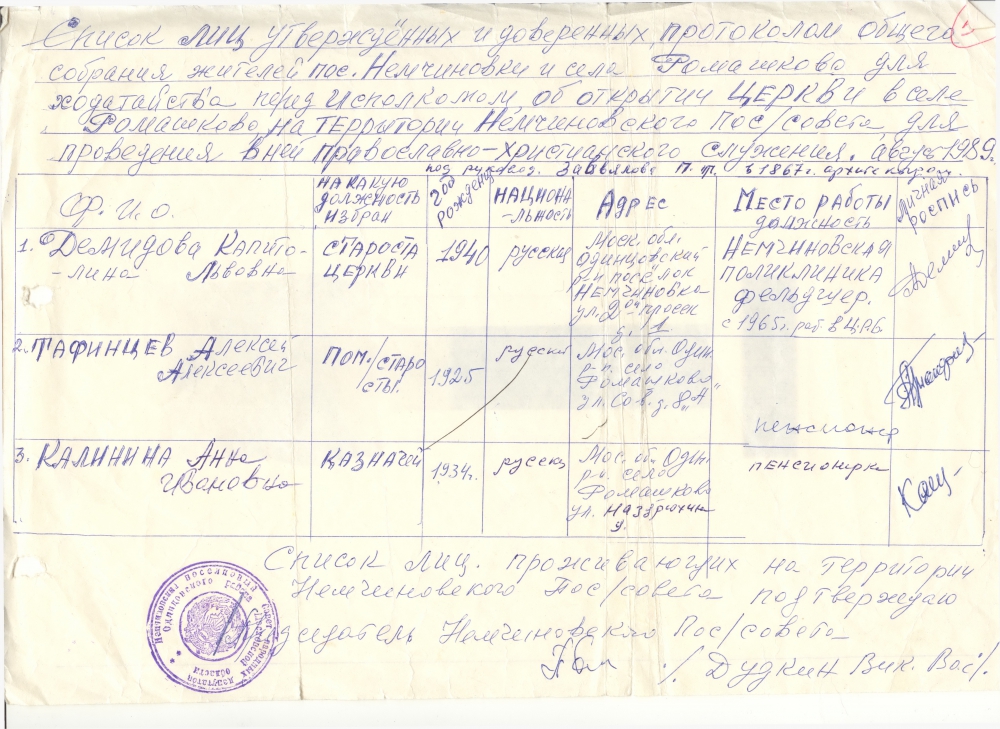 Список лиц утверждённых и доверенных, протоколом общего
собрания жителей пос. Немчиновки и села Ромашково для
ходатайства перед Исполкомом об открытии Церкви в селе
Ромашково, на территории Немчиновского Пос/совета, для
проведения в ней Православно-христианского служения. август 1989г.
под руковод. Завьялова П. в 1867г.
Ф. И. О.
на какую должность избран
год рождения
национа-льность
Адрес
Место работы должность
личная роспись
1. Демидова Капито-
-лина Львовна
староста церкви
1940
русская
Моск. обл.
Одинцовский
р-н посёлок
Немчиновка
ул. 2ой просек
д. 1
Немчиновская
поликлиника
фельдшер.
с 1965г. раб. в ЦРБ
Демид
2. Тафинцев Алексей
Алексеевич
пом./старо
сты.
1925
русский
Мос. обл. Один.
р-н. село
Ромашково
ул. Сов. д. 8 "А"
пенсионер
3. Калинина Анна
Ивановна
казначей
1934г.
русск
Мос. об. Один.
р-н. село
Ромашково
ул.
пенсионерка
Список лиц. проживающих на территории
Немчиновского Пос/совета подтверждаю
Председатель Немчиновского Пос/совета
/. Дудкин Вик. Вас/.
Немчиновский поселковый Совет народных депутатов
Одинцовского района Московской области